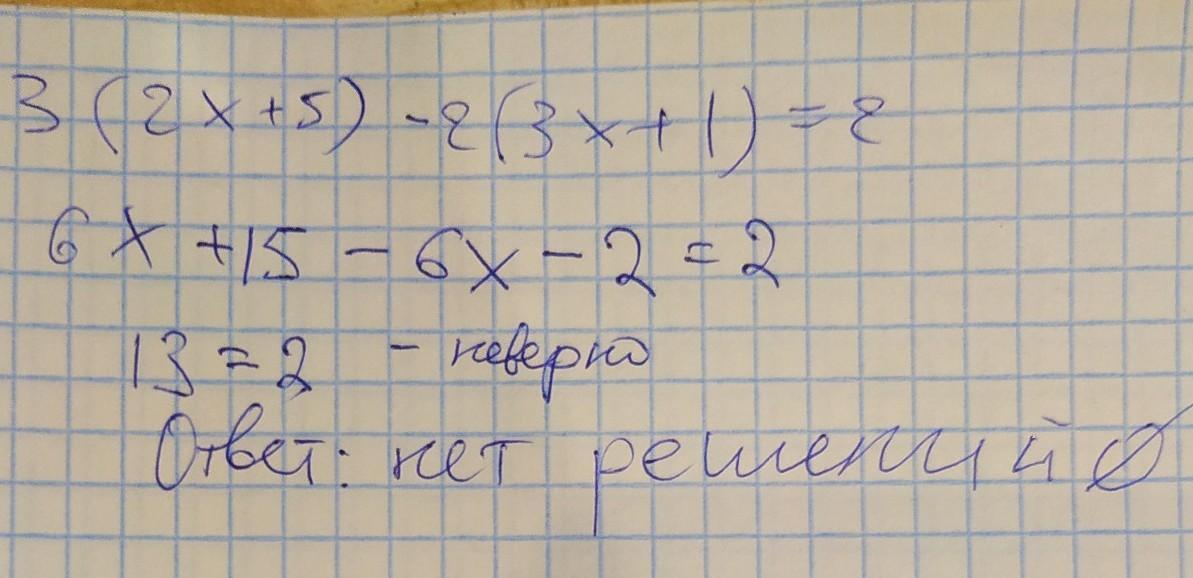 3(2x+5)-2(3x+1)=2
6x+15-6x-2=2
13=2 - неверно
Ответ: нет решений ∅